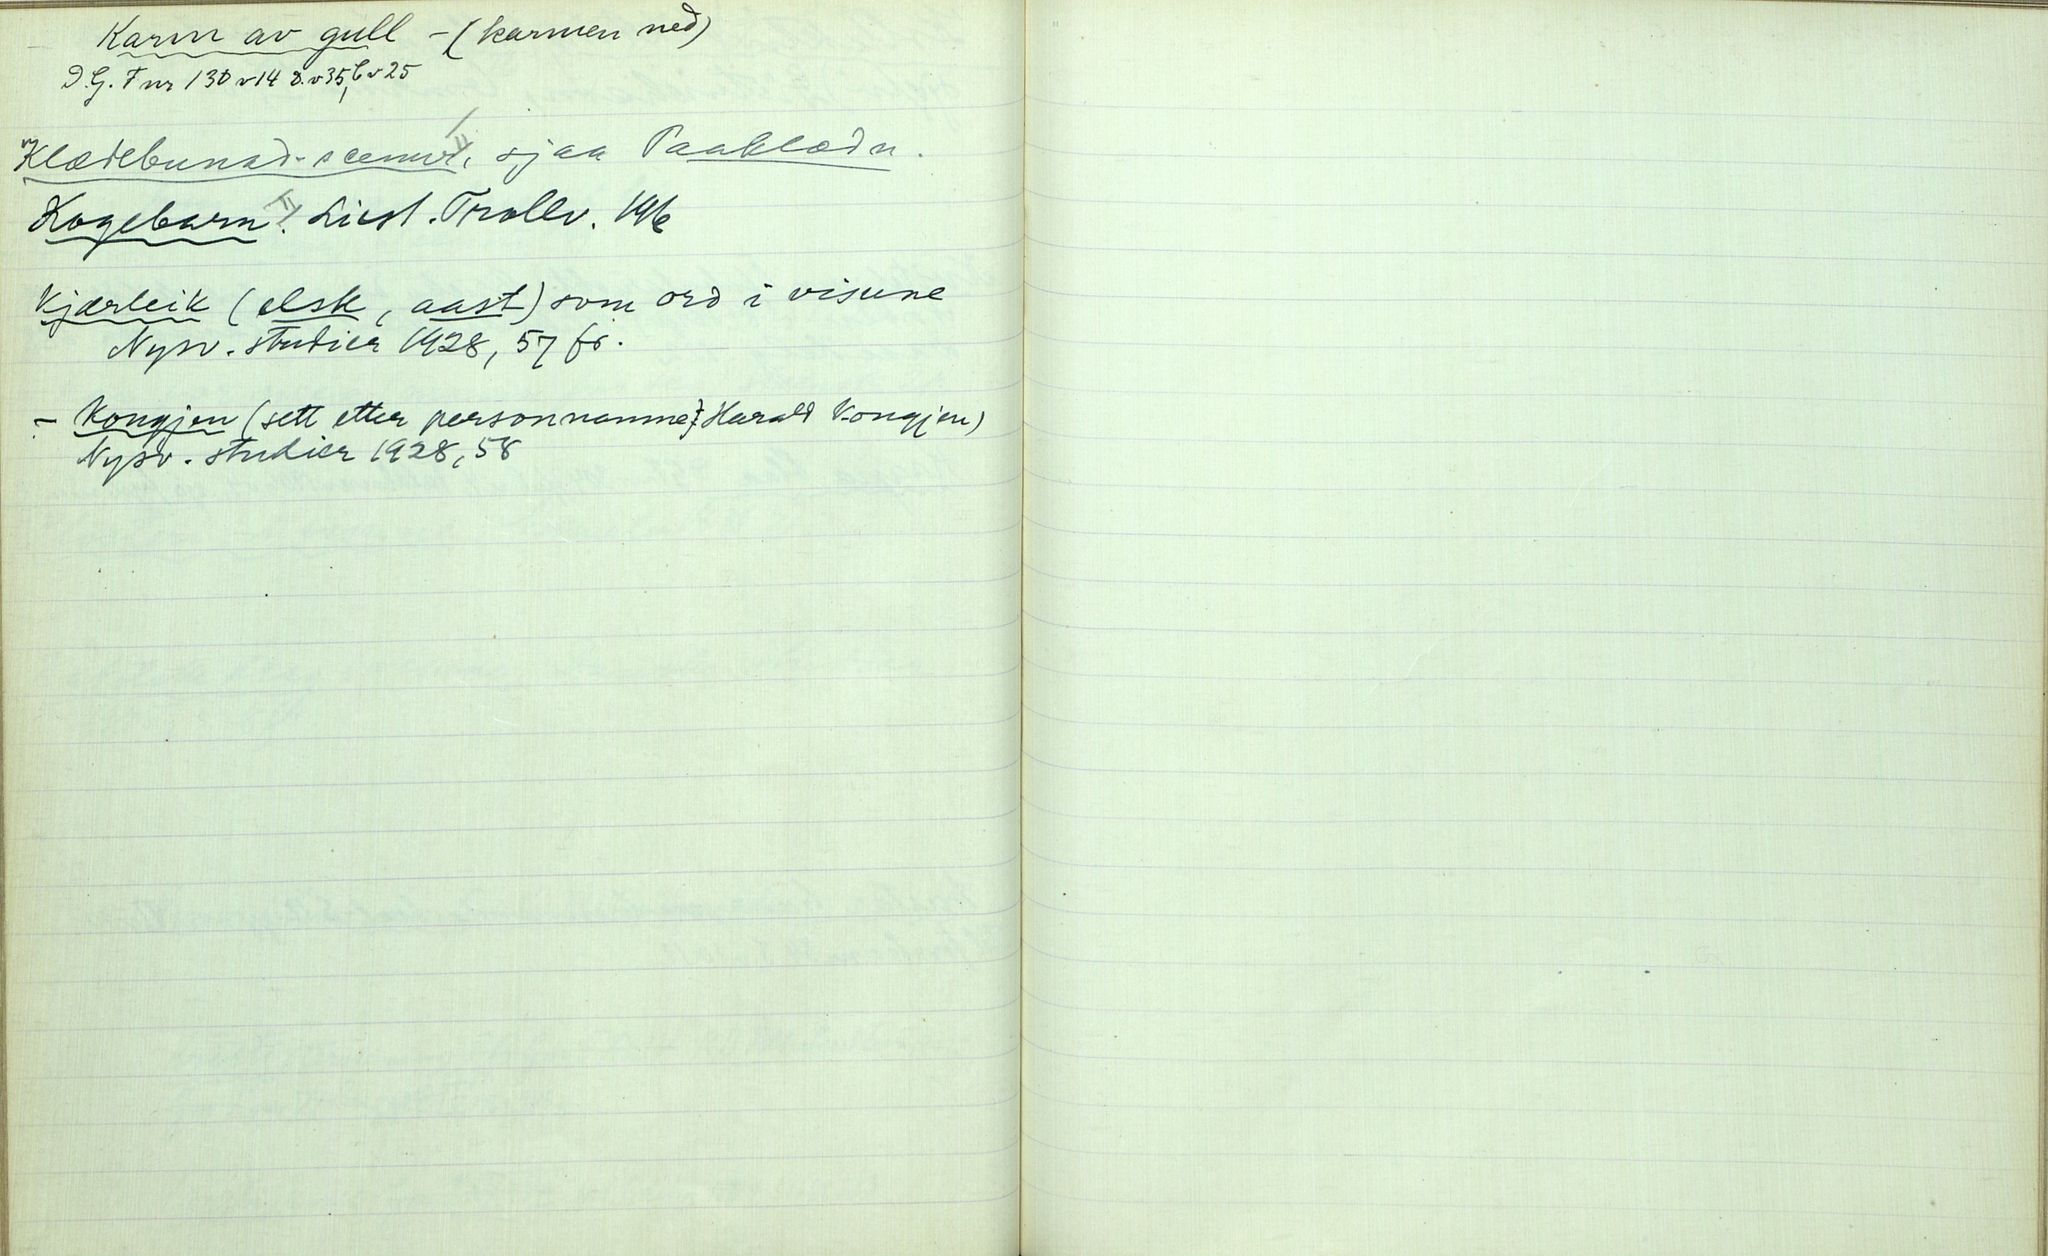 Karm av gull - (karmen ned)
D.G.F nr 13 D v 14 D. v 35, C v 25
Klædebunad-scenur, sjaa Paaklædn.
Kogebarn. Liest. Trollv. 196
Kjærleik (elsk, aast) som ord i visune
Nysv. studier 1928, 57 fr.
- Kongjen (sett etter personnamne: Harald Kongjen)
Nysv. studier 1928, 58